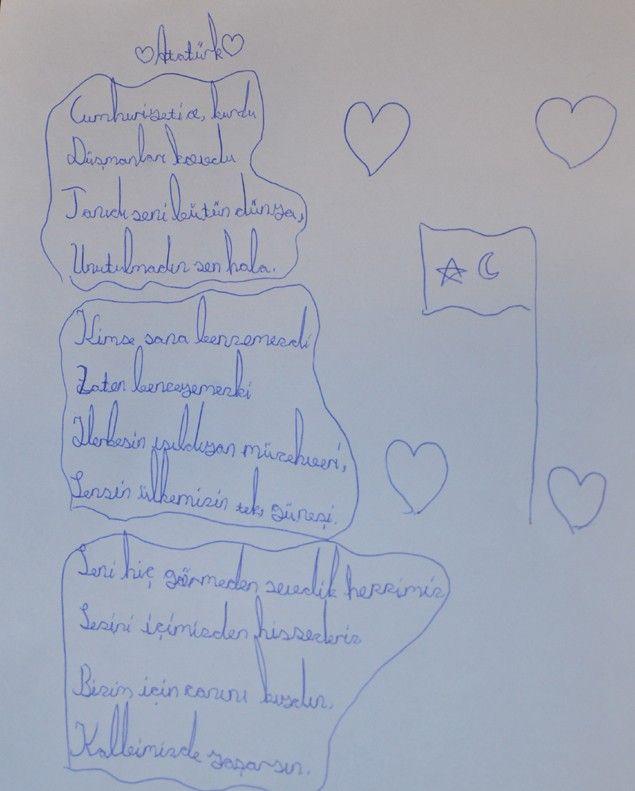 Atatürk
Cumhuriyeti o, kurdu
Düşmanları kovdu
Tanıdı seni bütün dünya,
Unutulmadın sen hala.
Kimse sana benzemezdi
Zaten benzeyemezki
Herkesin ışıldayan mücehveri,
Sensin ülkemizin tek güneşi.
Seni hiç görmeden sevdik hepimiz
Sesini içimizden hissederiz
Bizim için canını koydun.
Kalbimizde yaşarsın.